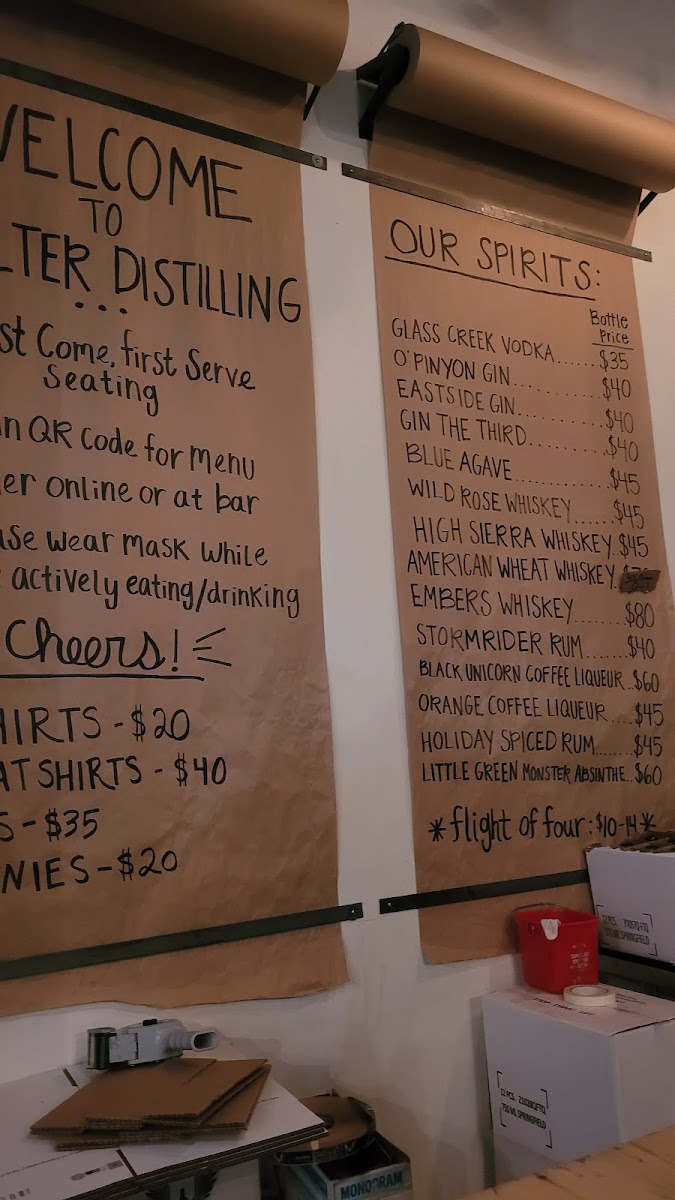 WELCOME
TO
LTER DISTILLING
...
st Come, first Serve
Seating
n QR code for menu
er online or at bar
ase wear mask while
actively eating/drinking
Cheers!
HIRTS - $20
ATSHIRTS - $40
S - $35
NIES - $20
OUR SPIRITS:
Bottle
Price
GLASS CREEK VODKA......$35
O'PINYON GIN............$40
EASTSIDE GIN............$40
GIN THE THIRD.........$40
BLUE AGAVE............$45
WILD ROSE WHISKEY......$45
HIGH SIERRA WHISKEY.$45
AMERICAN WHEAT WHISKEY.
EMBERS WHISKEY.......$80
STORMRIDER RUM.......$40
BLACK UNICORN COFFEE LIQUEUR..$60
ORANGE COFFEE LIQUEUR....$45
HOLIDAY SPICED RUM.......$45
LITTLE GREEN MONSTER ABSINTHE..$60
*flight of four: $10-14*
12 PCS.
750 ML SPRINGFIELD
12 PCS.
750 ML SPRINGFIELD
MONOGRAM